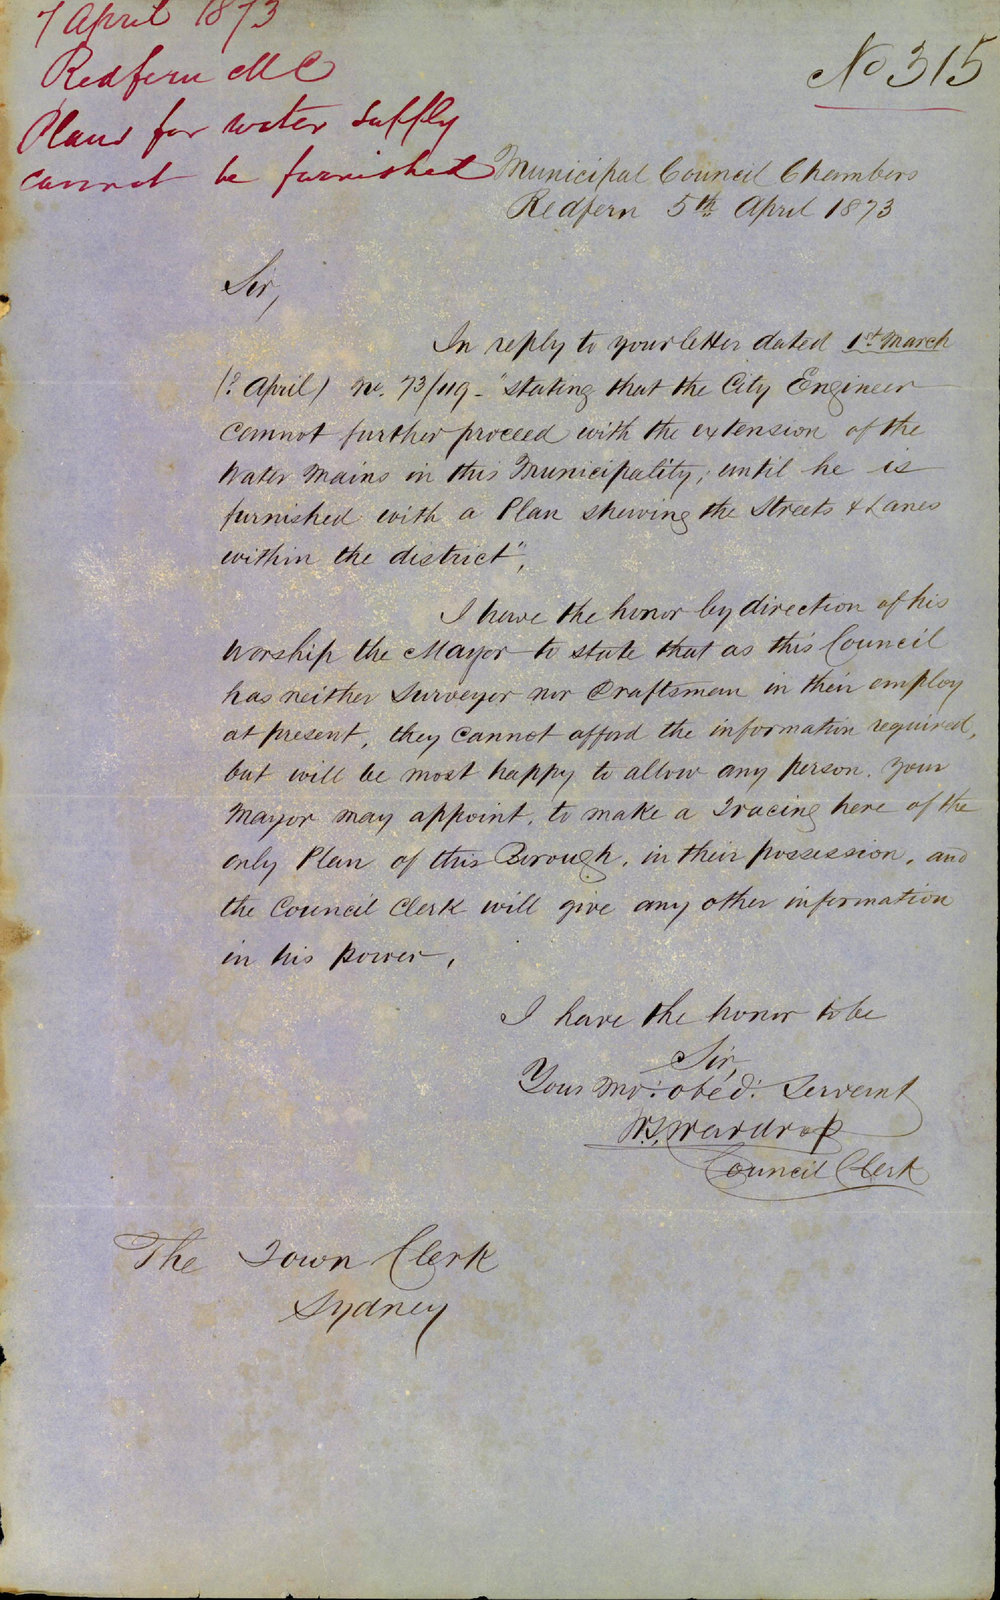 7 April 1873
Redfern M C
Plans for water supply
cannot be furnished
No 315
Municipal Council Chambers
Redfern 5th April 1873
Sir,
In reply to your letter dated 1st March
(? April) no. 73/119 - "stating that the City Engineer
cannot further proceed with the extension of the
Water Mains in this Municipality, until he is
furnished with a Plan shewing the Streets & Lanes
within the district",
I have the honor by direction of his
Worship the Mayor to state that as this Council
has neither Surveyor nor Draftsman in their employ
at present, they cannot afford the information required,
but will be most happy to allow any person. your
Mayor may appoint, to make a Tracing here of the
only Plan of this Borough, in their possession, and
the Council Clerk will give any other information
in his power,
I have the honor to be
Sir,
Your Mo: obed: Servant
Wardrop
Council Clerk
The Town Clerk
Sydney